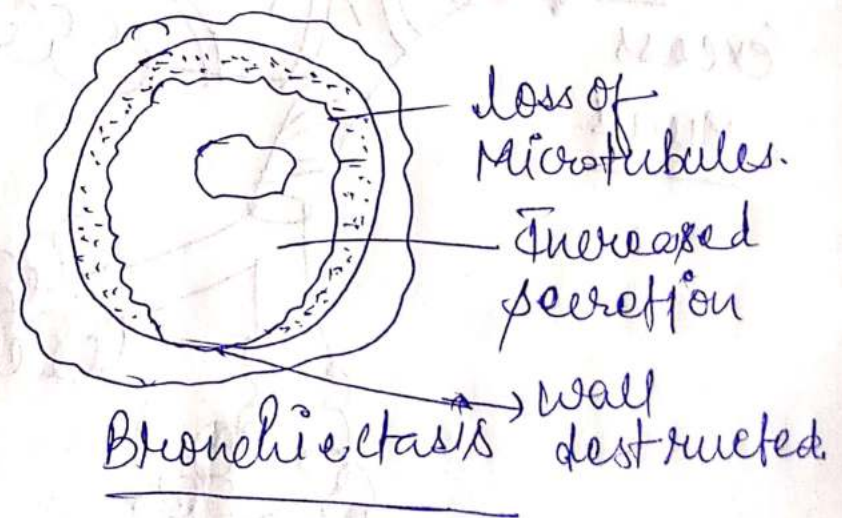 loss of
Microtubules.
Increased
secretion
wall
destructed.
Bronchiectasis